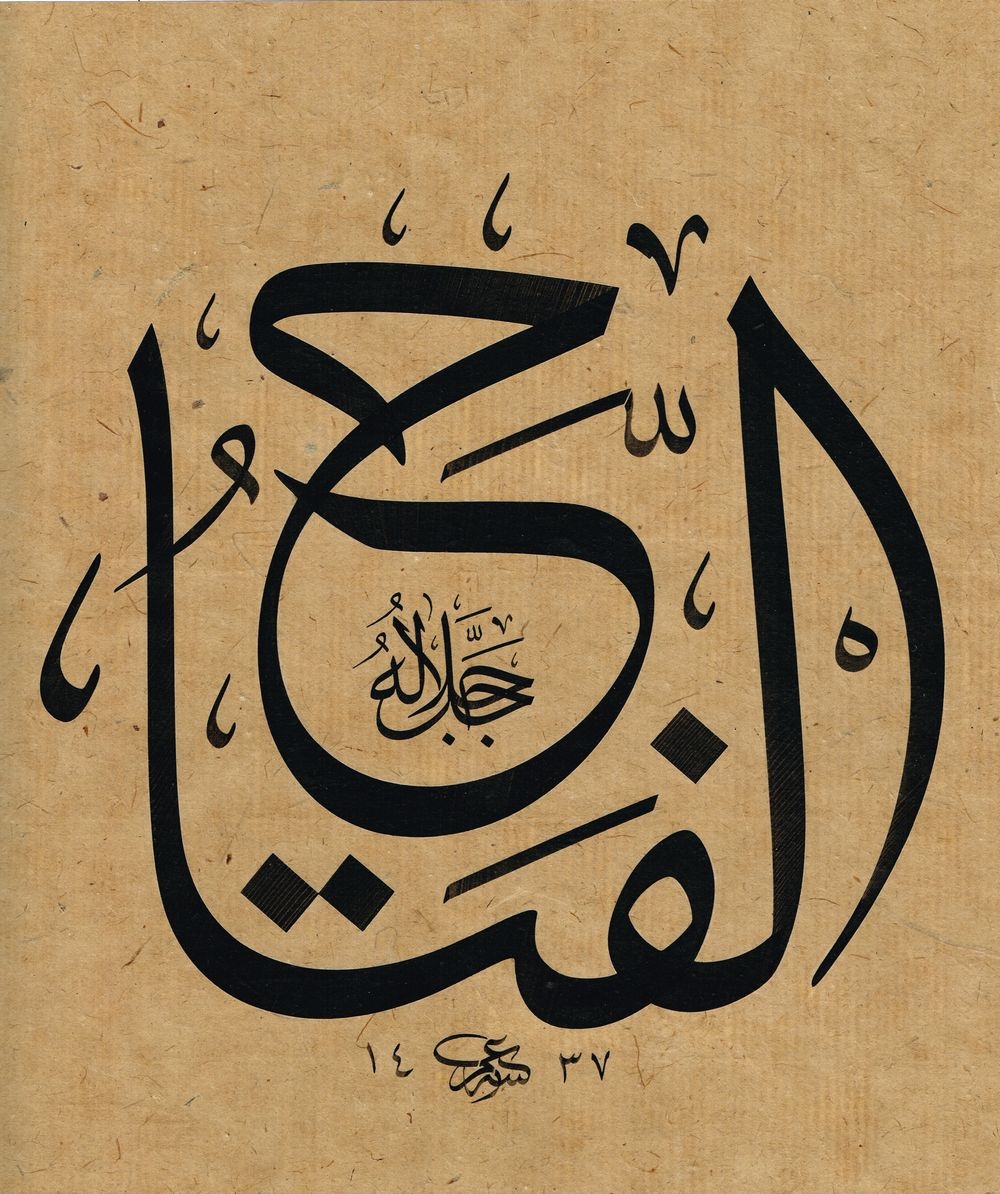 الْفَتَّاحُ
جَلَّ جَلَالُهُ
١٤ ٣٧